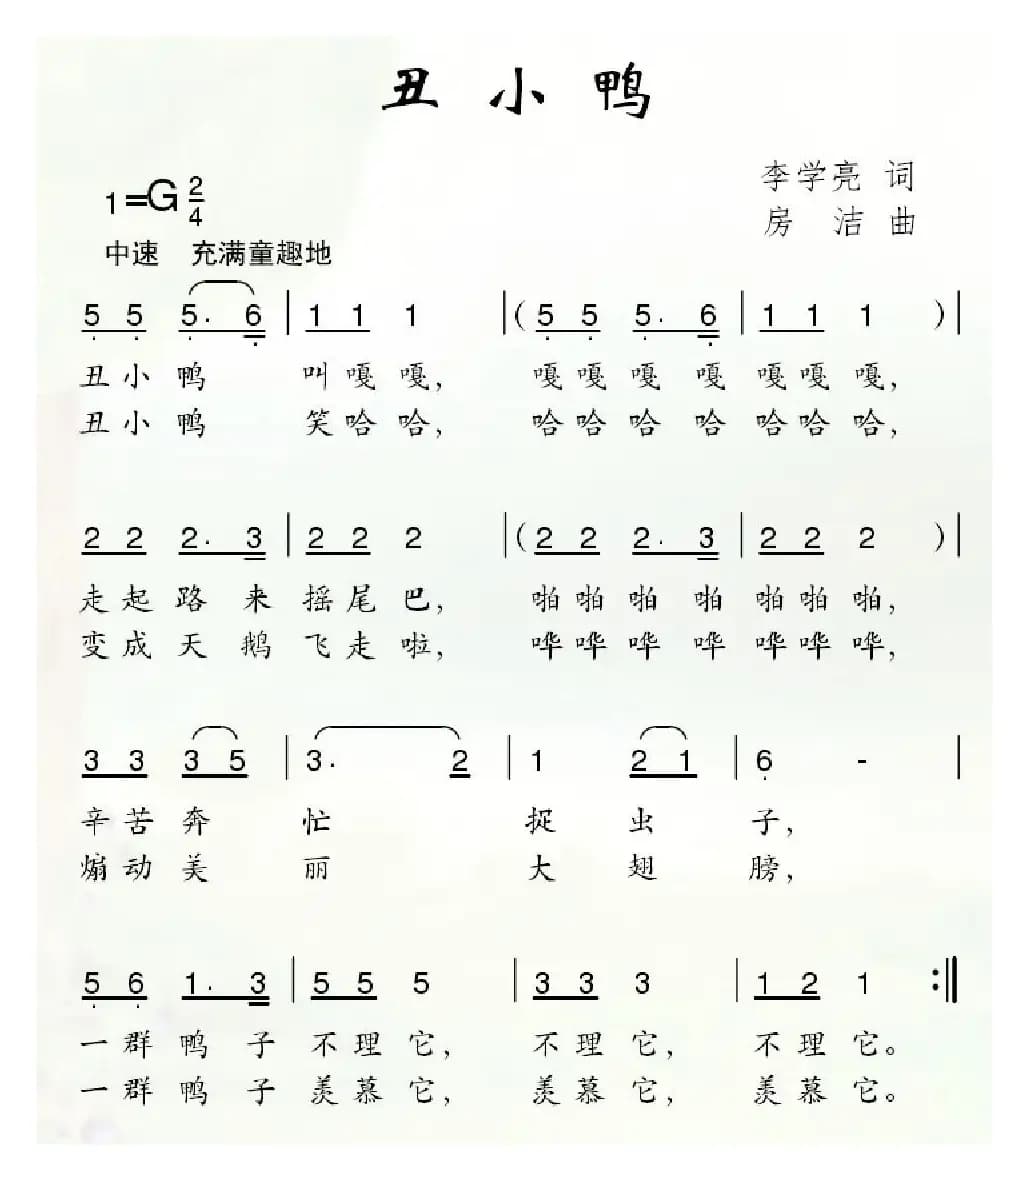 丑小鸭
李学亮 词
1=G 2/4
房 洁 曲
中速 充满童趣地
5 5 5. 6 | 1 1 1 |( 5 5 5. 6 | 1 1 1 )|
丑小鸭 叫嘎嘎, 嘎嘎嘎 嘎 嘎嘎嘎,
丑小鸭 笑哈哈, 哈哈哈 哈 哈哈哈,
2 2 2. 3 | 2 2 2 |( 2 2 2. 3 | 2 2 2 )|
走起路来摇尾巴, 啪啪啪 啪 啪啪啪,
变成天鹅飞走啦, 哗哗哗 哗 哗哗哗,
3 3 3 5 | 3. 2 | 1 2 1 | 6 - |
辛苦奔 忙 捉 虫 子,
煽动美 丽 大 翅 膀,
5 6 1. 3 | 5 5 5 | 3 3 3 | 1 2 1 :‖
一群鸭子不理它, 不理它, 不理它。
一群鸭子羡慕它, 羡慕它, 羡慕它。